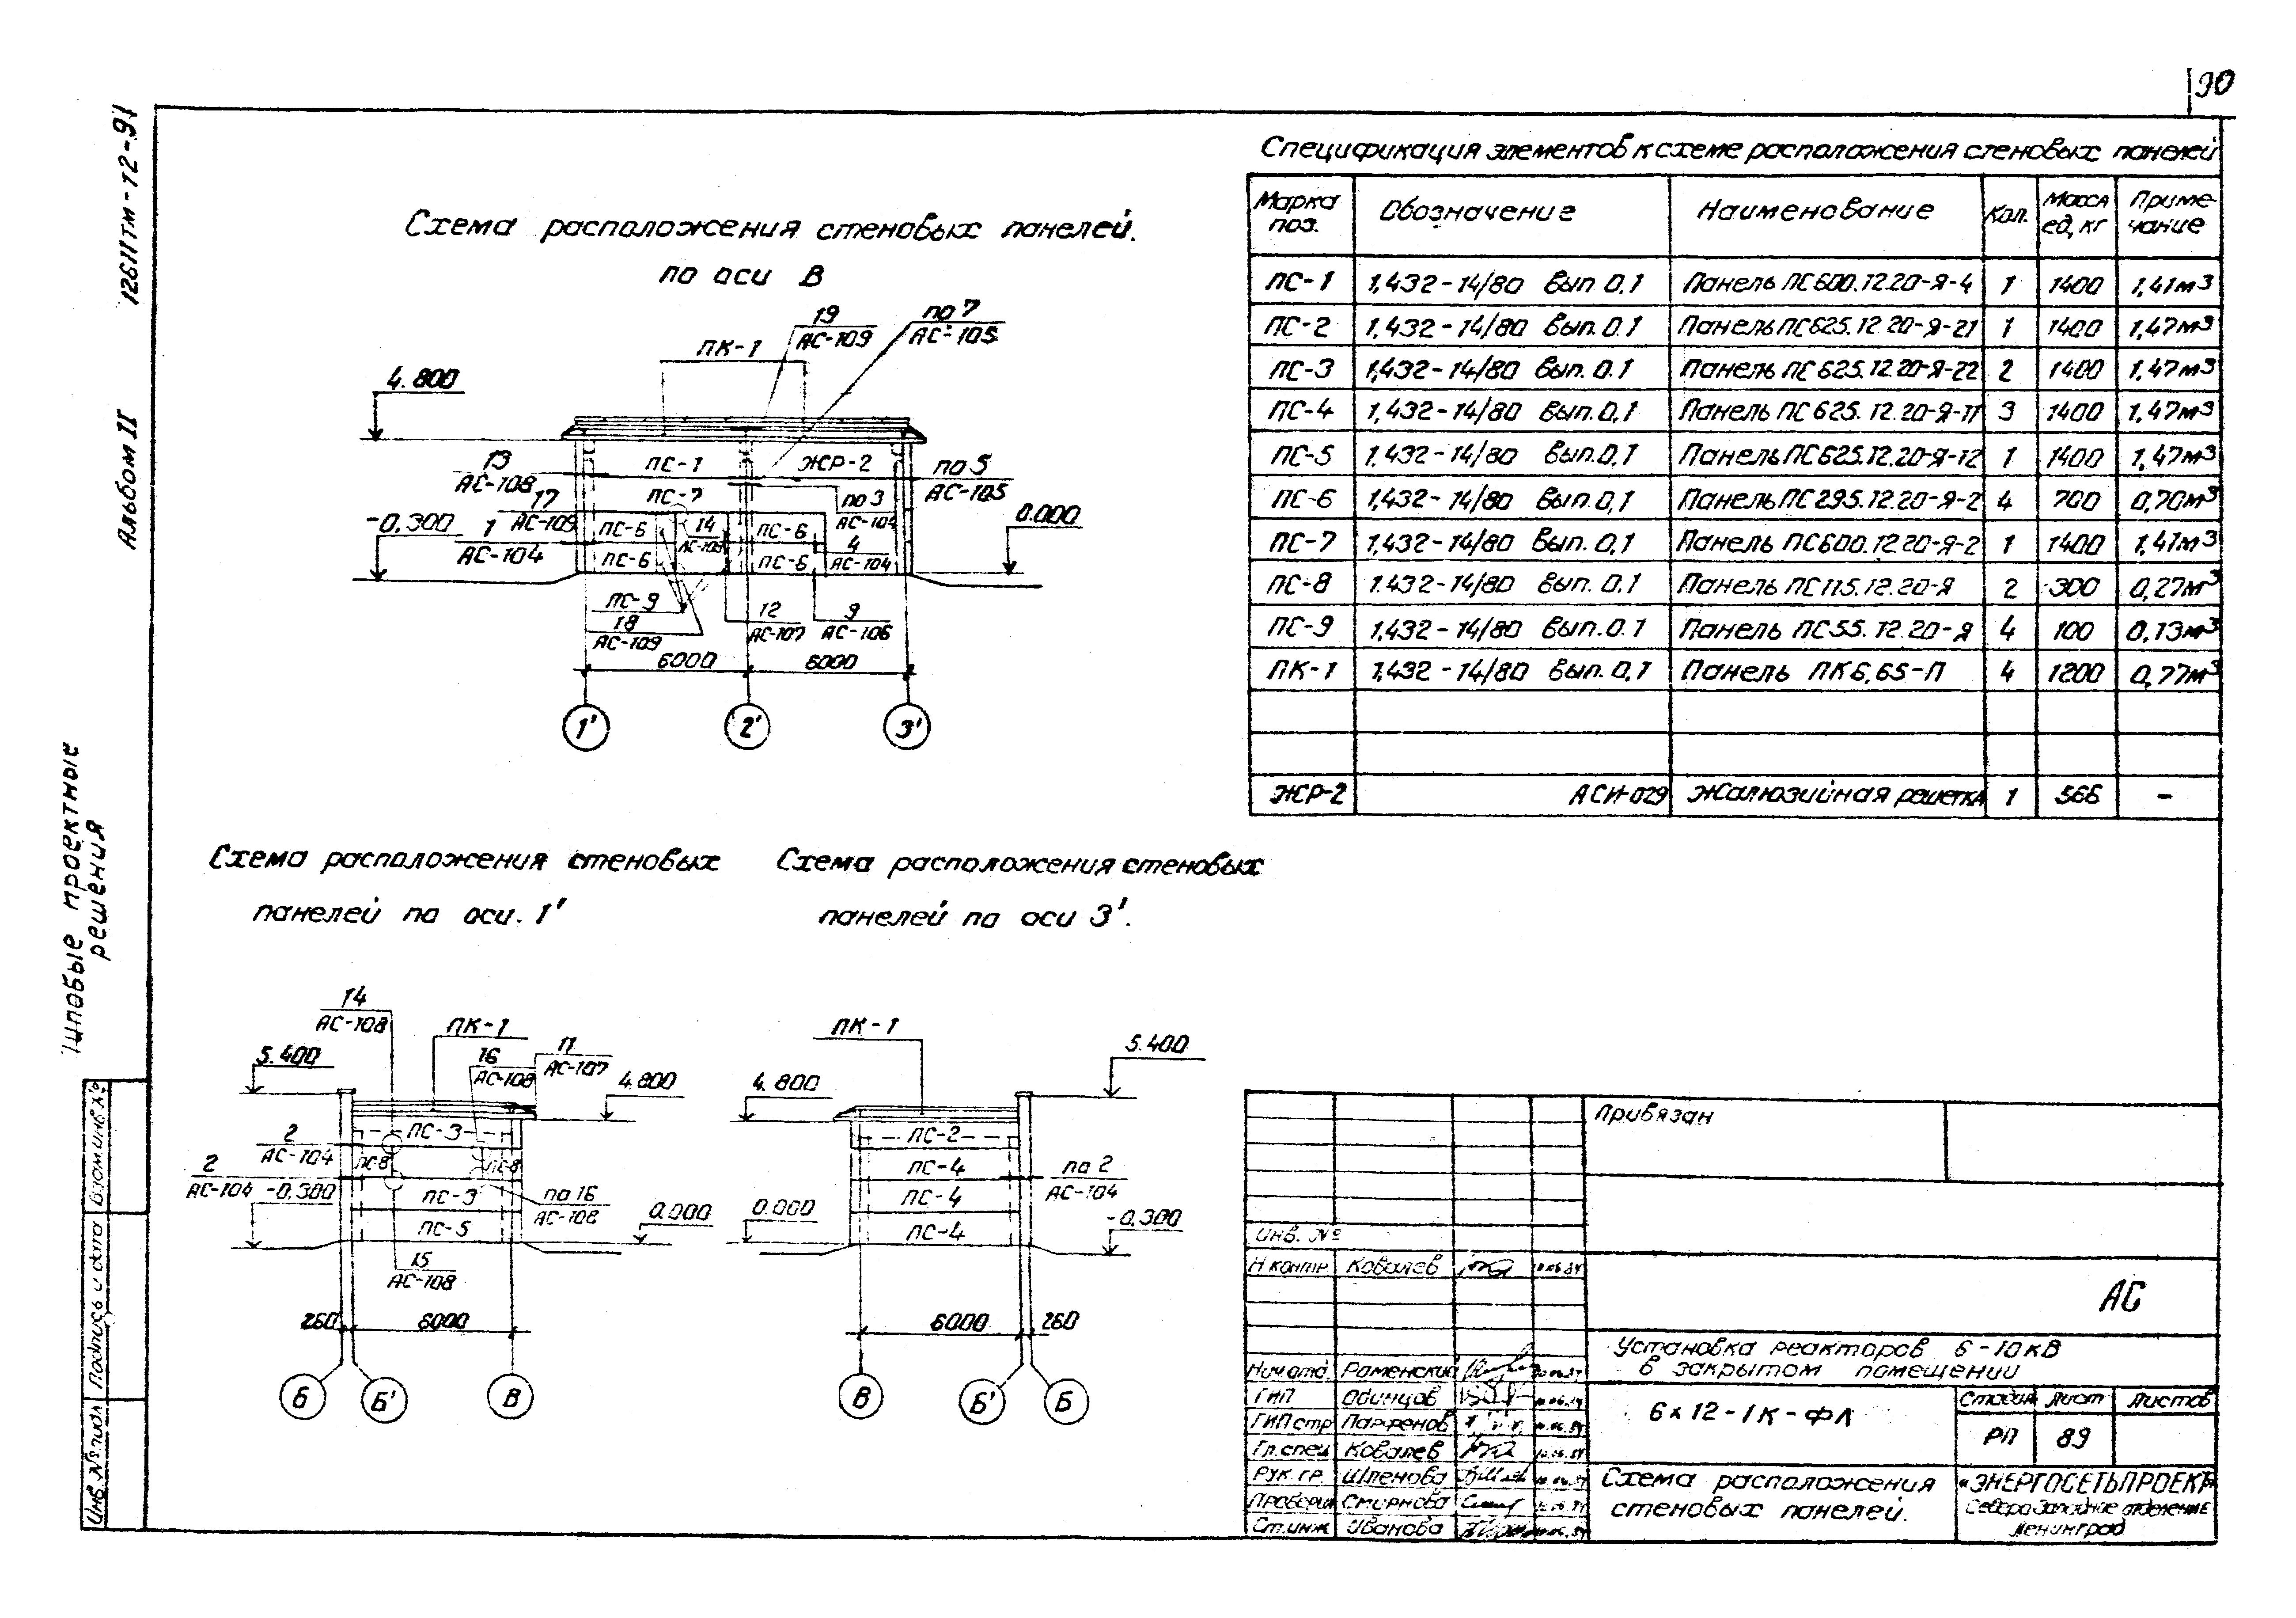 90
12611тм-т2-91
Альбом II
Типовые проектные
решения
Взам.инв.№
Подпись и дата
Инв.№подл
Схема расположения стеновых панелей.
по оси В
ПК-1
19
АС-109
по 7
АС-105
4.800
ПС-1
ЖСР-2
13
АС-108
по 5
АС-105
ПС-7
17
АС-109
по 3
АС-104
-0,300
1
АС-104
ПС-6
14
ПС-6
4
АС-104
0.000
ПС-6
ПС-6
ПС-9
18
АС-109
12
АС-107
9
АС-106
6000
6000
1'
2'
3'
Спецификация элементов к схеме расположения стеновых панелей
Марка поз. Обозначение Наименование Кол. Масса ед, кг Приме-чание
ПС-1 1,432-14/80 Вып 0.1 Панель ПС600.12.20-Я-4 1 1400 1,41м3
ПС-2 1,432-14/80 Вып.0.1 Панель ПС625.12 20-Я-21 1 1400 1,47м3
ПС-3 1,432-14/80 Вып. 0.1 Панель ПС625.12.20-Я-22 2 1400 1,47м3
ПС-4 1,432-14/80 Вып.0,1 Панель ПС625.12.20-Я-11 3 1400 1,47м3
ПС-5 1.432-14/80 Вып.0,1 Панель ПС625.12.20-Я-12 1 1400 1,47м3
ПС-6 1,432-14/80 Вып.0,1 Панель ПС295.12.20-Я-2 4 700 0,70м3
ПС-7 1,432-14/80 Вып. 0,1 Панель ПС600.12 20-Я-2 1 1400 1,41м3
ПС-8 1.432-14/80 Вып. 0.1 Панель ПС115.12.20-Я 2 300 0,27м3
ПС-9 1,432-14/80 Вып.0.1 Панель ПС55.12.20-Я 4 100 0,13м3
ПК-1 1,432-14/80 Вып.0,1 Панель ПК6,65-П 4 1200 0,77м3
ЖСР-2 АСИ-029 Жалюзийная решетка 1 566 -
Схема расположения стеновых
панелей по оси. 1'
14
АС-108
ПК-1
16
АС-108
11
АС-107
5.400
4.800
ПС-3
2
АС-104
ПС-8
ПС-8
2
АС-104
-0.300
ПС-3
по 16
АС-108
0.000
ПС-5
15
АС-108
260
6000
Б
Б'
В
Схема расположения стеновых
панелей по оси 3'.
ПК-1
5.400
4.800
ПС-2
ПС-4
по 2
АС-104
ПС-4
0.000
-0.300
ПС-4
6000
260
В
Б'
Б
Привязан
Инв. №
Н.контр Ковалев
АС
Установка реакторов 6-10кВ
в закрытом помещении
Нач.отд. Раменский
ГИП Одинцов
ГИП стр Парфенов
Гл.спец Ковалев
Рук.гр. Шленова
Проверил Смирнова
Ст.инж Иванова
6х12-1К-ФЛ
Стадия Лист Листов
РП 89
Схема расположения
стеновых панелей.
«ЭНЕРГОСЕТЬПРОЕКТ»
Северо-Западное отделение
Ленинград